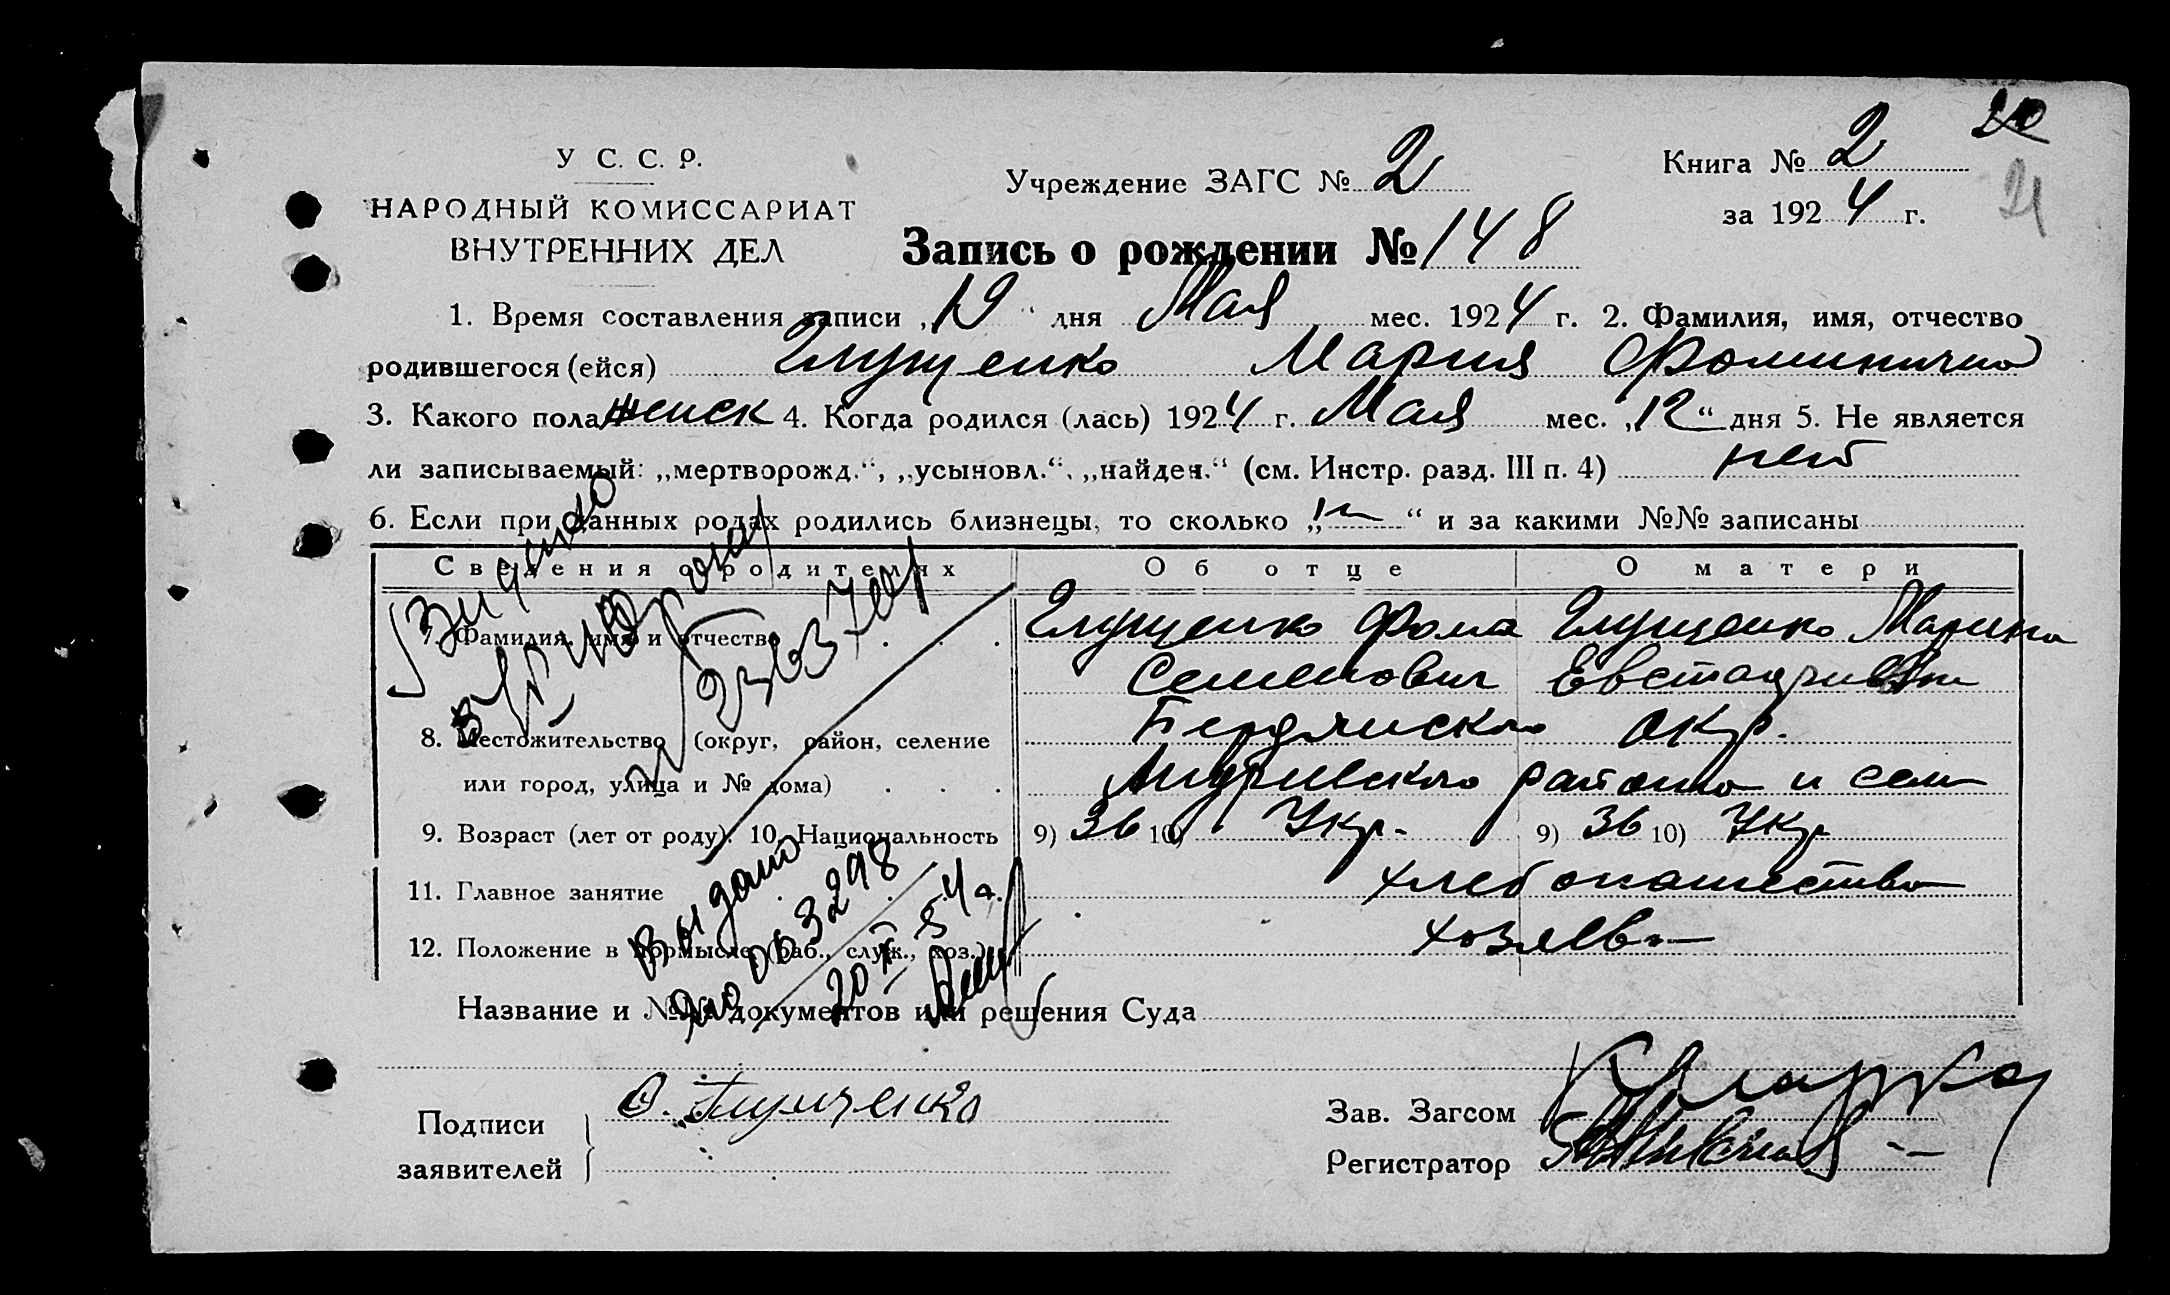 20
21
У С. С. Р.
НАРОДНЫЙ КОМИССАРИАТ
ВНУТРЕННИХ ДЕЛ
Учреждение ЗАГС № 2
Книга № 2
за 1924 г.
Запись о рождении № 148
1. Время составления записи „19“ дня Мая мес. 1924 г. 2. Фамилия, имя, отчество
родившегося (ейся) Глущенко Мария Фоминична
3. Какого пола женск 4. Когда родился (лась) 1924 г. Мая мес. „12“ дня 5. Не является
ли записываемый: „мертворожд.“, „усыновл.“, „найден.“ (см. Инстр. разд. III п. 4) нет
6. Если при данных родах родились близнецы, то сколько „—“ и за какими №№ записаны
Сведения о родителях Об отце О матери
7. Фамилия, имя и отчество . . . Глущенко Фома Глущенко Марина
Семенович Евстафиевна
8. Местожительство (округ, район, селение Бердянского окр.
или город, улица и № дома) . . . Андриевского района и села
9. Возраст (лет от роду). 10. Национальность 9) 36 10) Укр. 9) 36 10) Укр
11. Главное занятие хлебопашество
12. Положение в промысле (раб., служ., хоз.) хозяева
Выдано
003298
20 54 г.
Название и №№ документов или решения Суда
Подписи
заявителей
Ф. Глущенко
Зав. Загсом
Регистратор